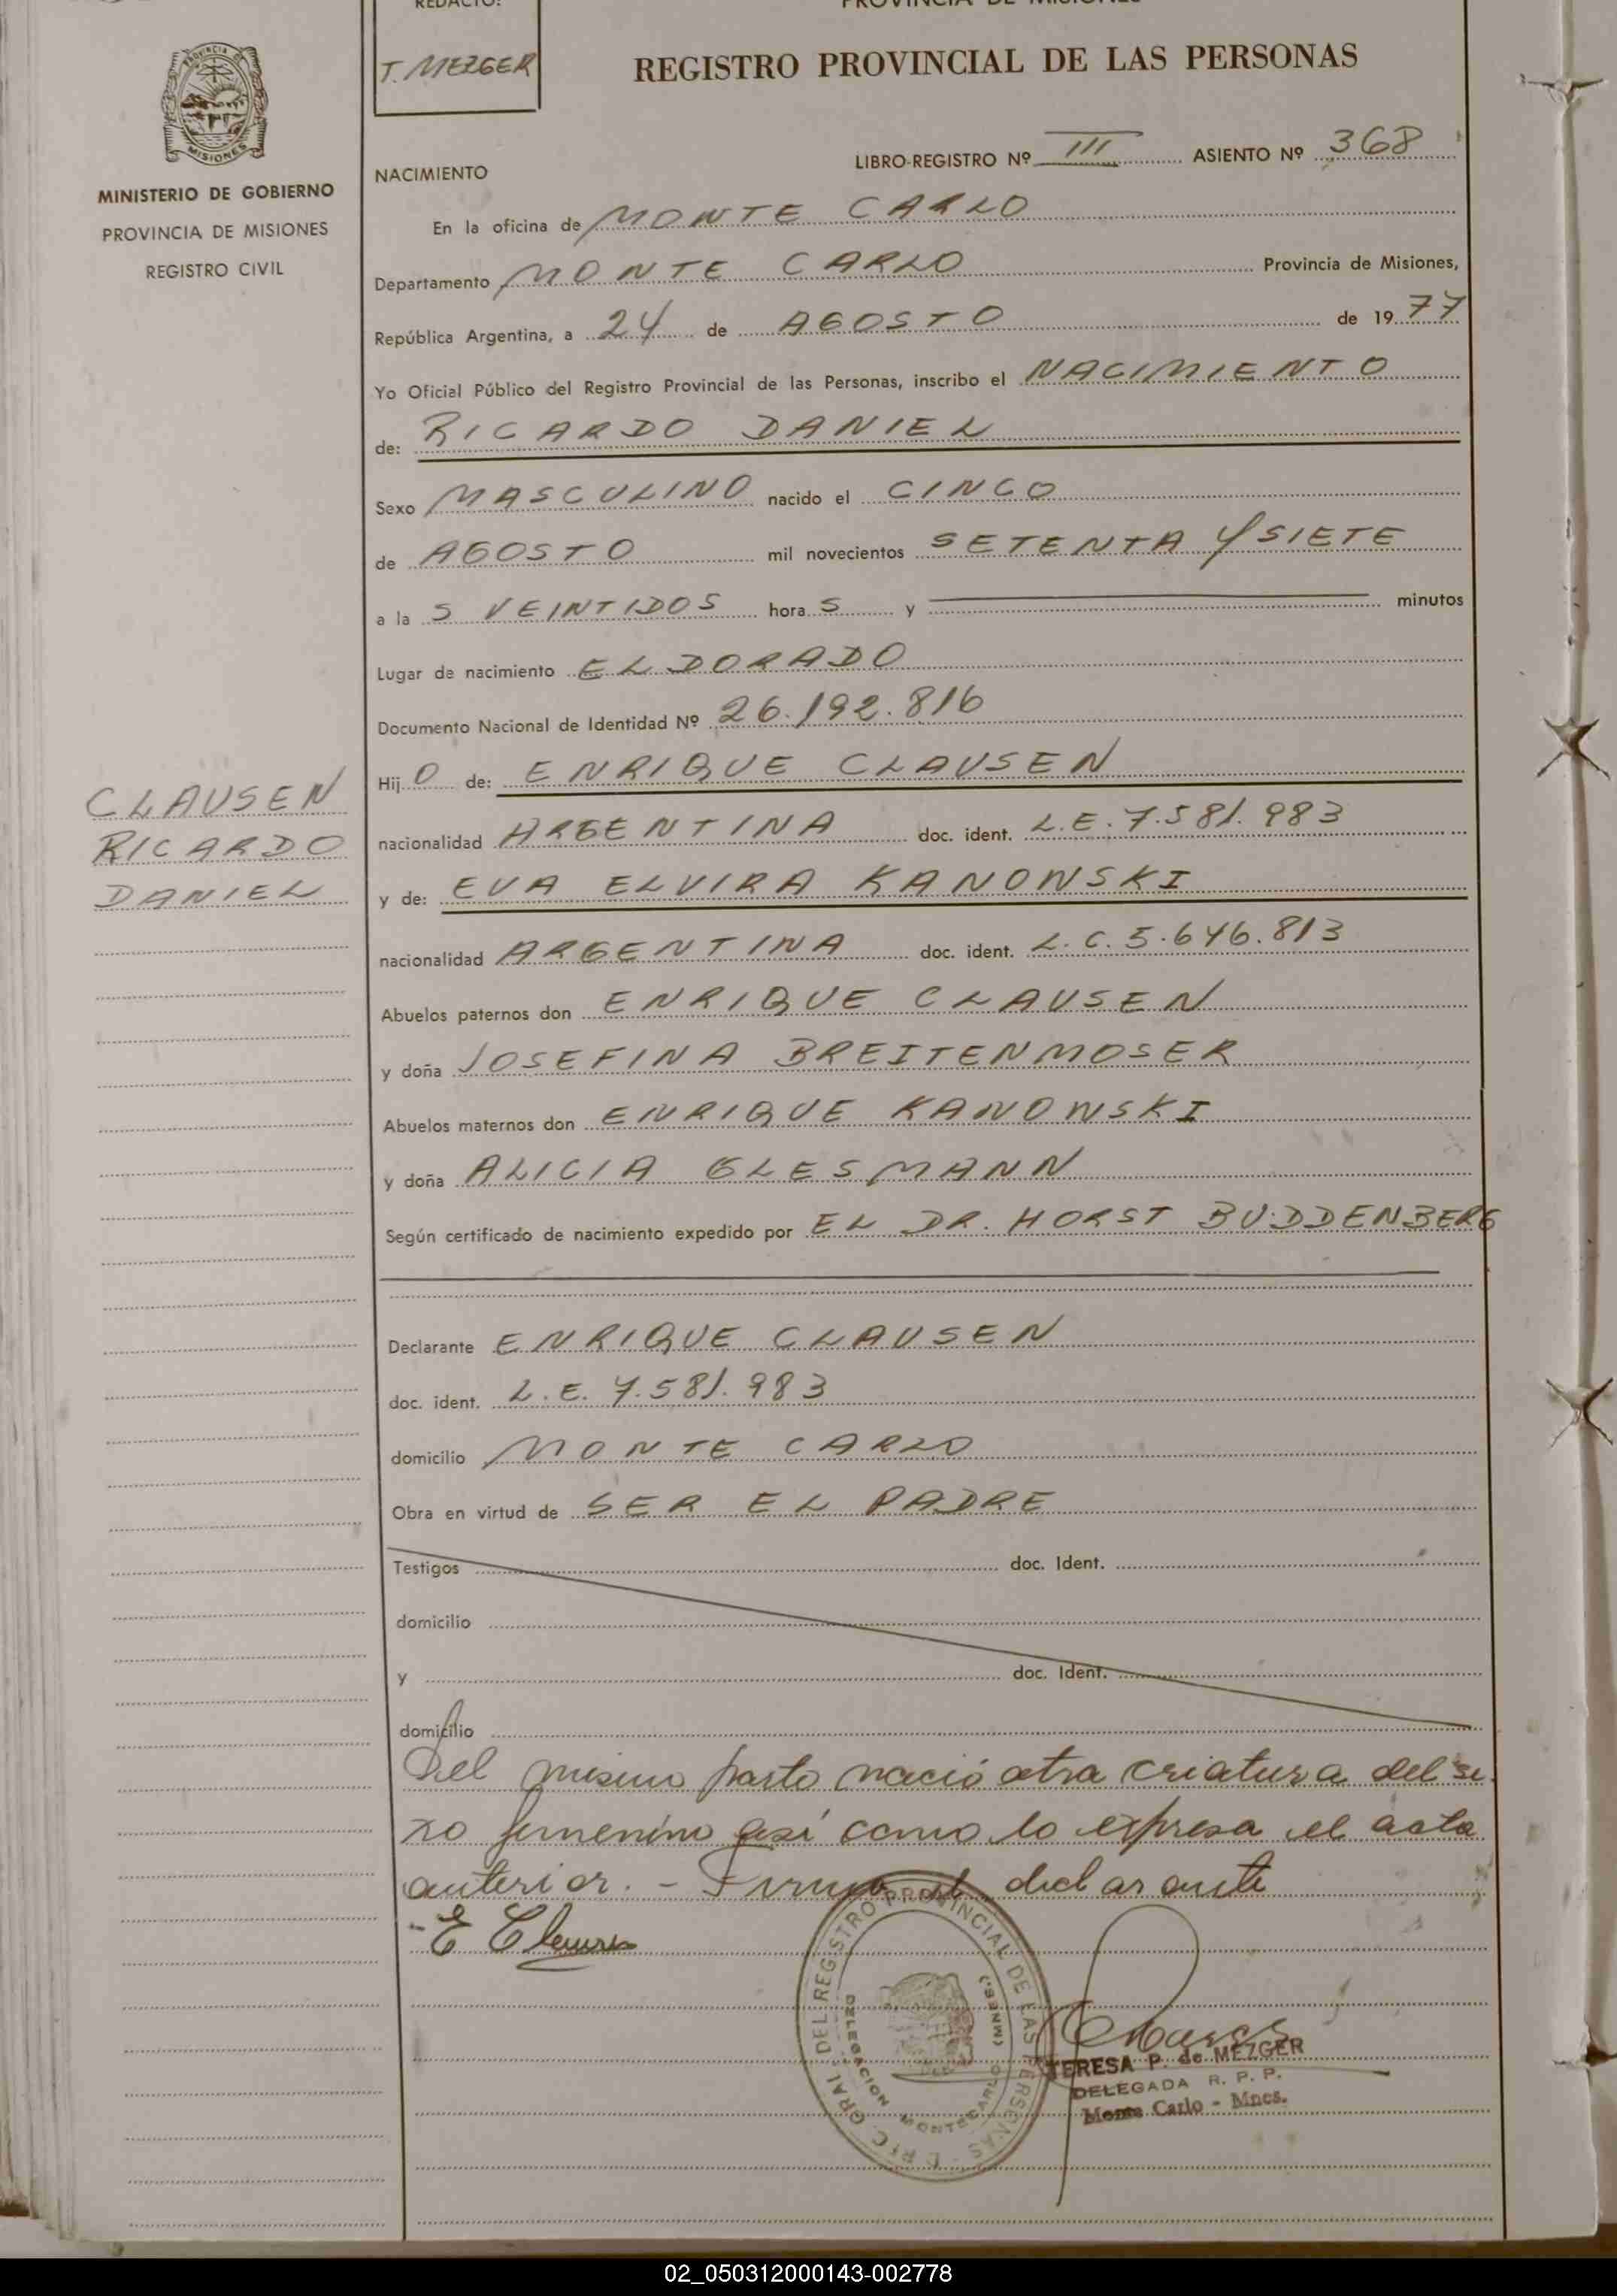 REDACTO:
PROVINCIA DE MISIONES
T. MEZGER
REGISTRO PROVINCIAL DE LAS PERSONAS
PROVINCIA DE
MISIONES
MINISTERIO DE GOBIERNO
PROVINCIA DE MISIONES
REGISTRO CIVIL
LIBRO-REGISTRO Nº III ASIENTO Nº 368
NACIMIENTO
En la oficina de MONTE CARLO
Departamento MONTE CARLO Provincia de Misiones,
República Argentina, a 24 de AGOSTO de 1977
Yo Oficial Público del Registro Provincial de las Personas, inscribo el NACIMIENTO
de: RICARDO DANIEL
Sexo MASCULINO nacido el CINCO
de AGOSTO mil novecientos SETENTA Y SIETE
a la S VEINTIDOS hora S y minutos
Lugar de nacimiento ELDORADO
Documento Nacional de Identidad Nº 26.192.816
Hij O de: ENRIQUE CLAUSEN
CLAUSEN
RICARDO
DANIEL
nacionalidad ARGENTINA doc. ident. L.E. 7.581.983
y de: EVA ELVIRA KANOWSKI
nacionalidad ARGENTINA doc. ident. L.C. 5.646.813
Abuelos paternos don ENRIQUE CLAUSEN
y doña JOSEFINA BREITENMOSER
Abuelos maternos don ENRIQUE KANOWSKI
y doña ALICIA GLESMANN
Según certificado de nacimiento expedido por EL DR. HORST BUDDENBERG
Declarante ENRIQUE CLAUSEN
doc. ident. L.E. 7.581.983
domicilio MONTE CARLO
Obra en virtud de SER EL PADRE
Testigos doc. Ident.
domicilio
y doc. Ident.
domicilio
Del mismo parto nació otra criatura del se-
xo femenino así como lo expresa el acta
anterior. - Firma el declarante
- E Clausen
DIREC. GRAL. DEL REGISTRO PROVINCIAL DE LAS PERSONAS
DELEGACION MONTECARLO (MNES.)
TERESA P. de MEZGER
DELEGADA R. P. P.
Monte Carlo - Mnes.
02_050312000143-002778